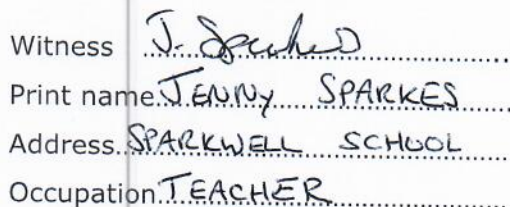 Witness J. Sparkes
Print name JENNY SPARKES
Address SPARKWELL SCHOOL
Occupation TEACHER